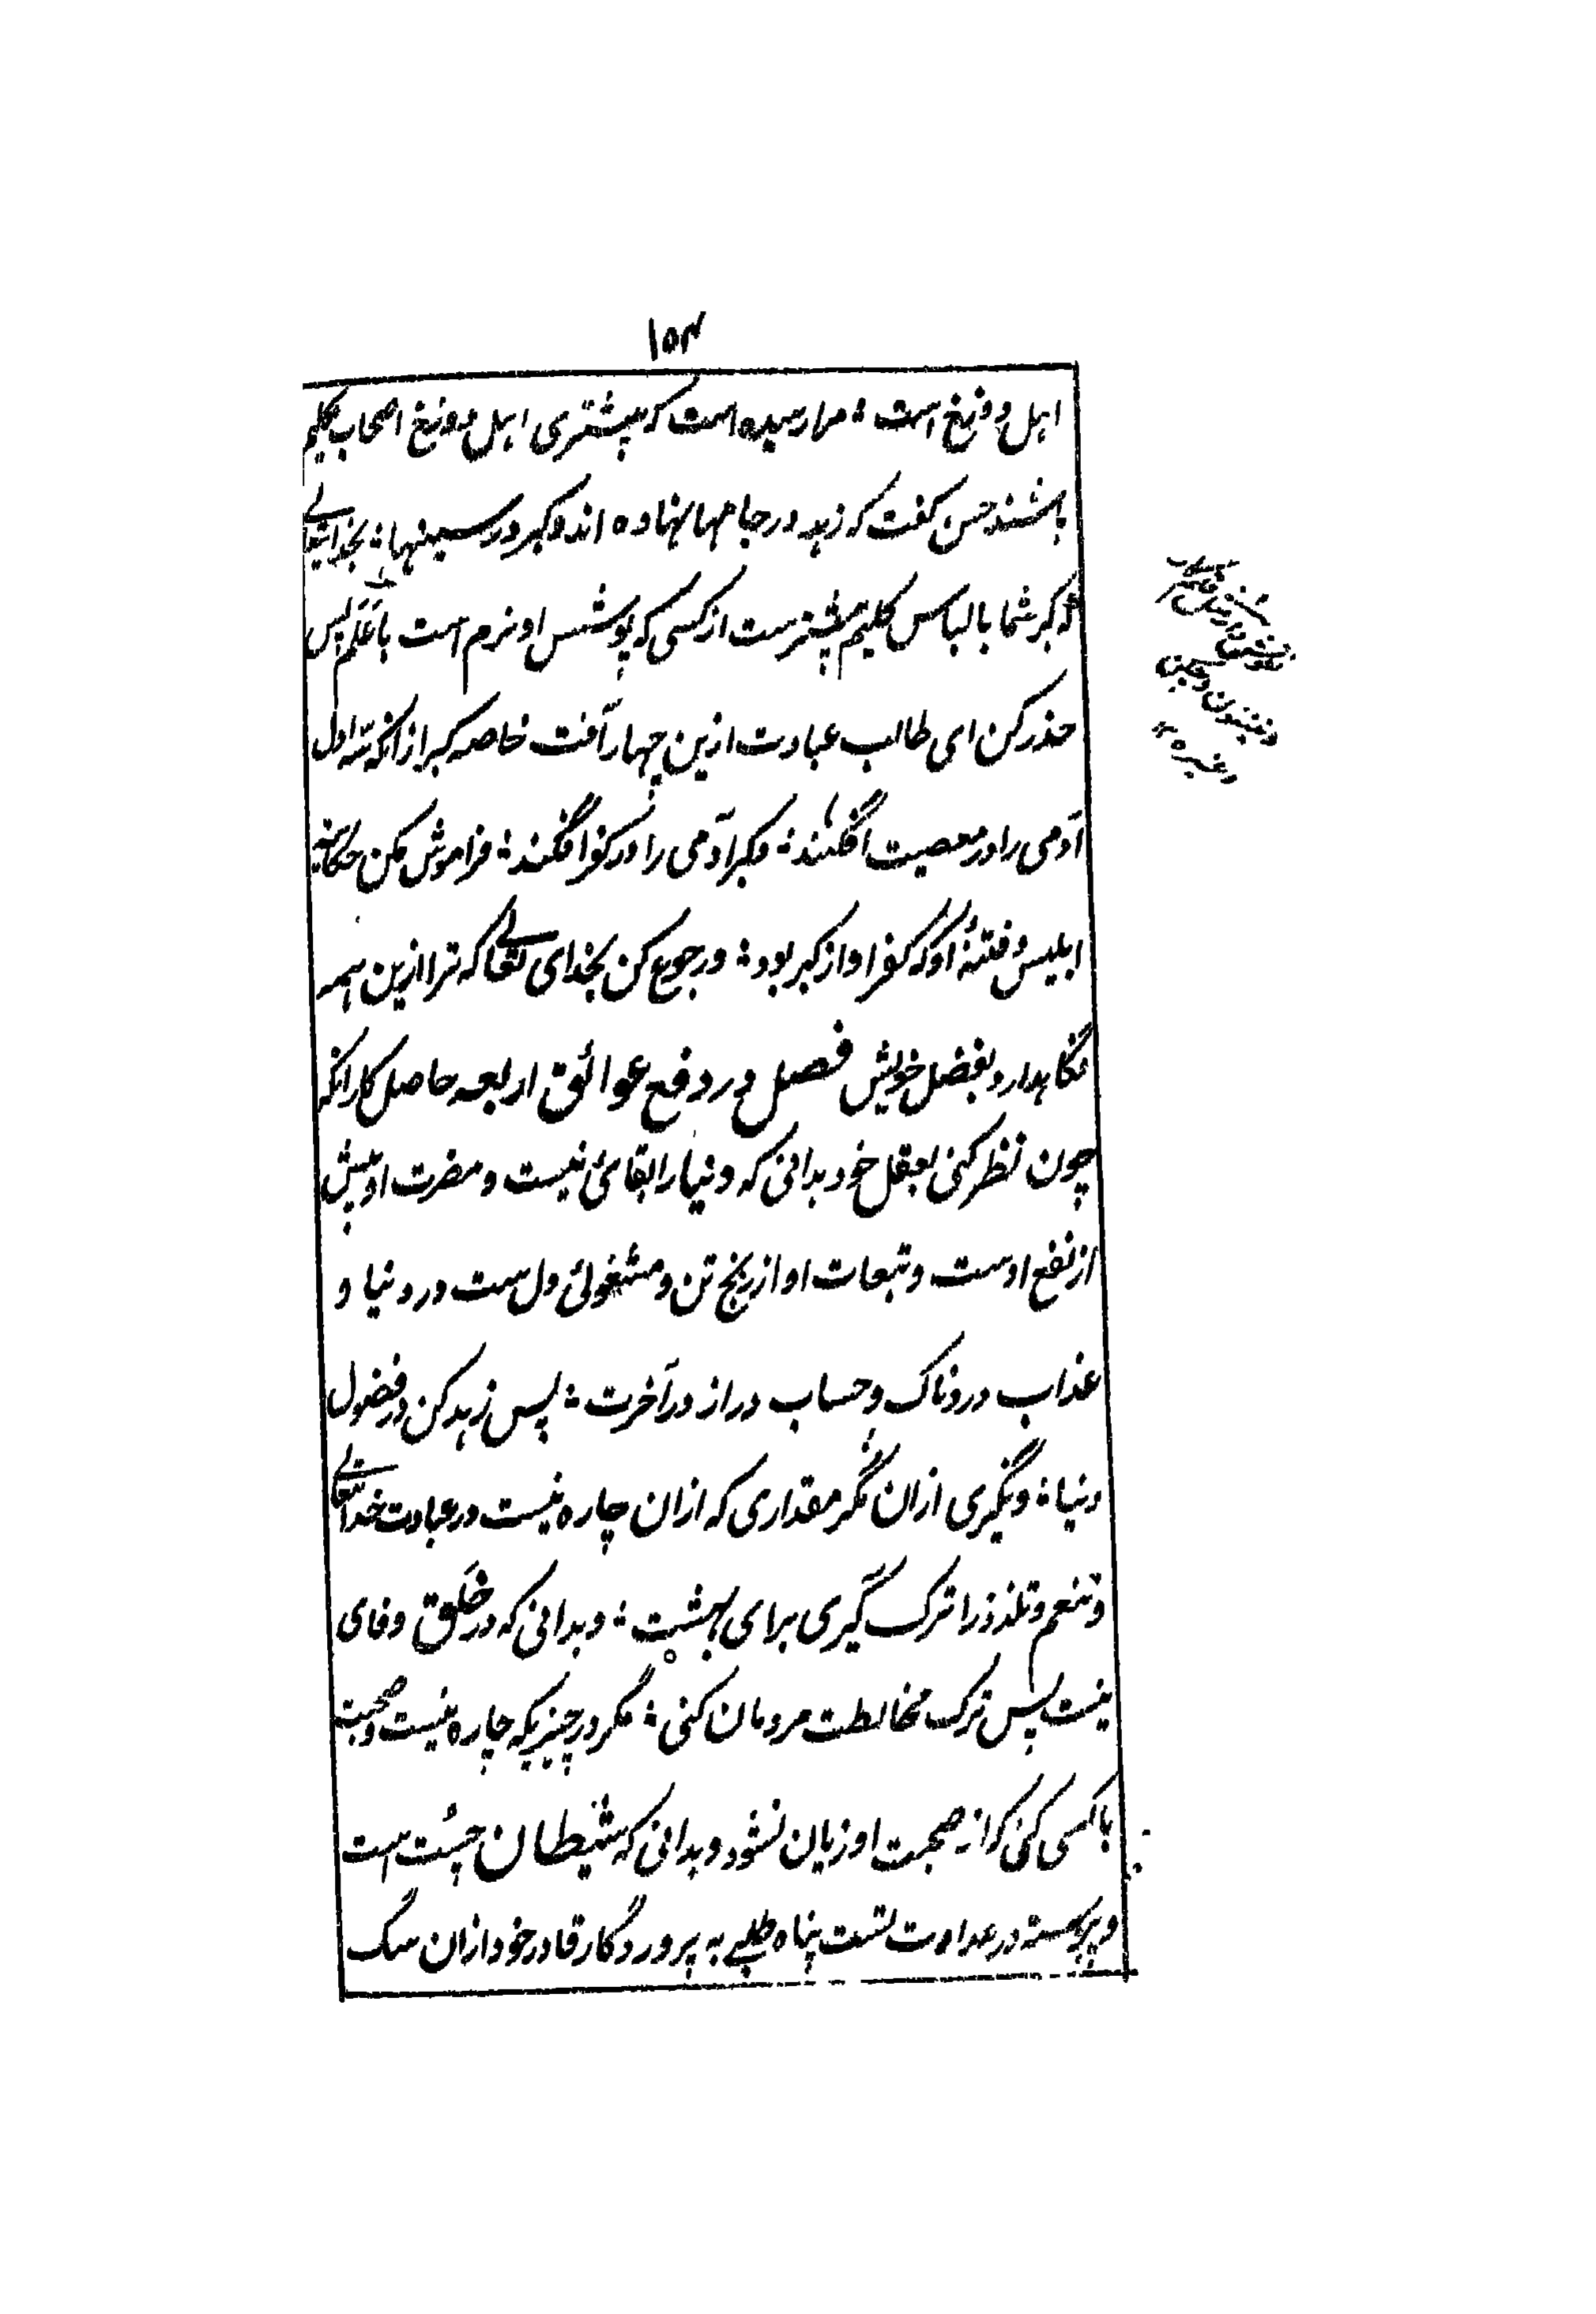 ۱۵۴
اهل دوزخ است ؛ مرا رسیده است که بیشتری اهل دوزخ اصحاب گلیم
باشند حسن گفت که زهد در جامها نهاده اند و کبر در سینها ؛ بخدایتعالی
که کبر شما با لباس گلیم بیشترست از کسی که پوشش او نرم است با عَلَم پس
حذر کن ای طالب عبادت ازین چهار آفت خاصه کبر از انکه سه اول
آدمی را در معصیت افگنند ؛ و کبر آدمی را در کفر افگند ؛ فراموش مکن حکایت
ابلیس و فتنهٔ او که کفر او از کبر بود ؛ و رجوع کن بخدای تعالی که ترا ازین همه
نگاهدارد بفضل خویش فصل در دفع عوائق اربعه حاصل کار انکه
چون نظر کنی بعقل خود بدانی که دنیا را بقائی نیست و مضرت او بیش
از نفع اوست و تبعات او از رنج تن و مشغولئ دل ست در دنیا و
عذاب دردناک و حساب دراز در آخرت ؛ پس زهد کن در فضول
دنیا ؛ و نگیری ازان مگر مقداری که ازان چاره نیست در عبادت خدایتعالی
و تنعم و تلذذ را ترک گیری برای بهشت ؛ و بدانی که در خَلق وفای
نیست پس ترک مخالطت مردمان کنی ؛ مگر در چیزیکه چاره نیست و صحبت
با کسی کنی که از صحبت او زیان نشود و بدانی که شیطان چُست است
و پیوسته در عداوت تست پناه طلبے به پروردگار قادر خود ازان سگ
وغیره ۱۲